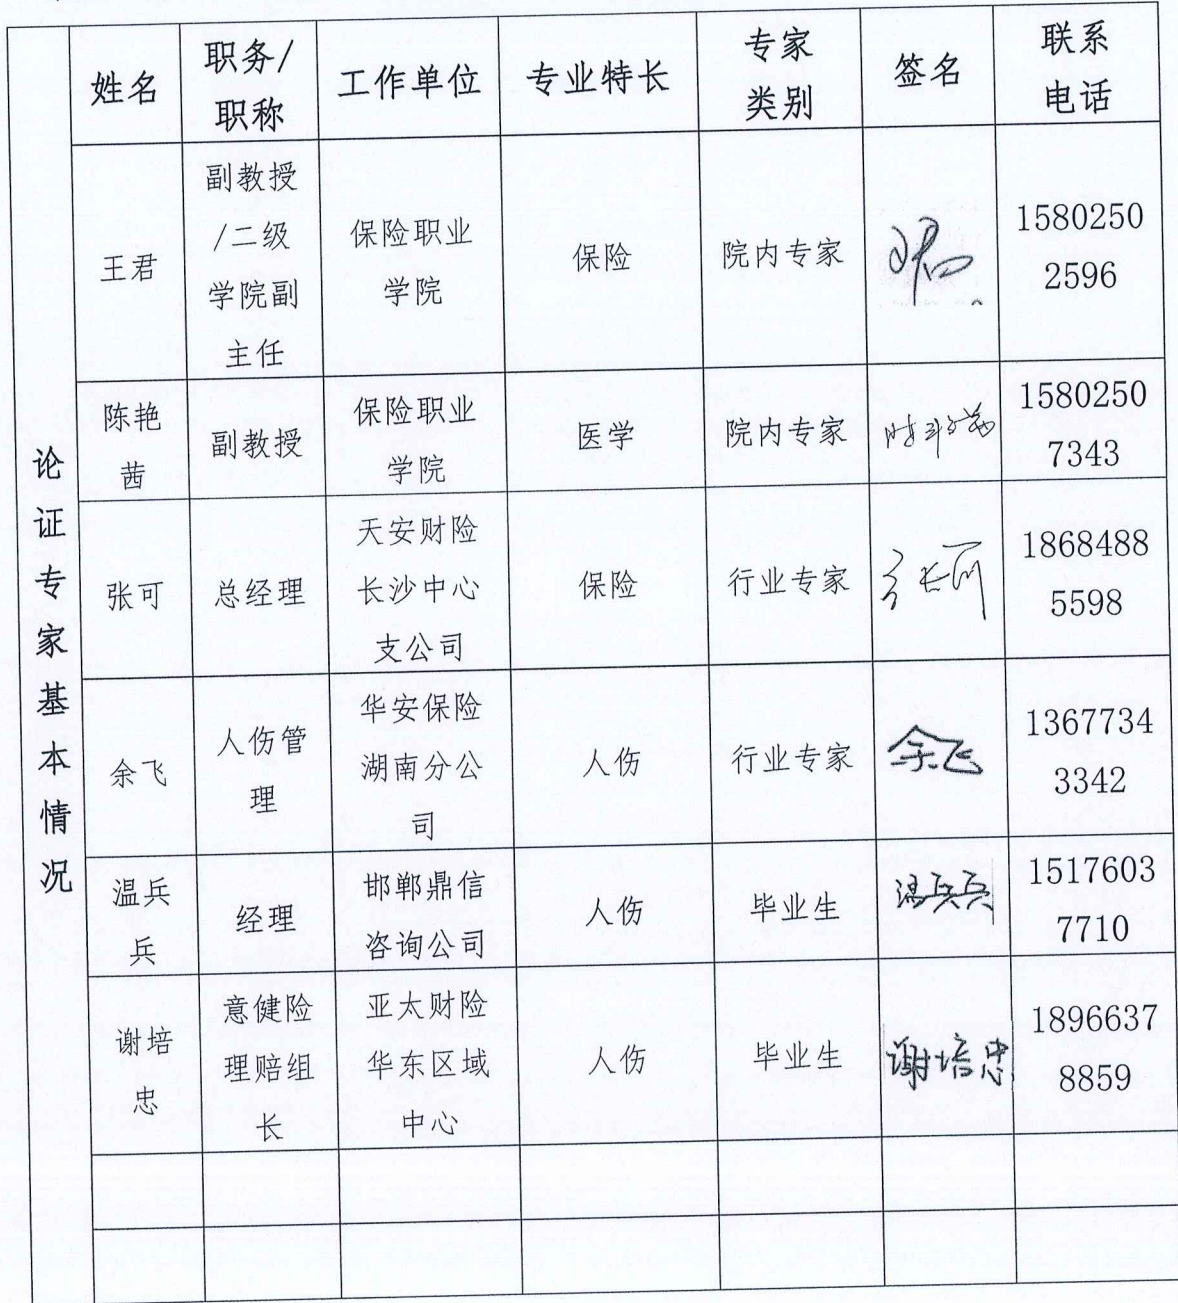 论证专家基本情况
姓名
职务/
职称
工作单位
专业特长
专家
类别
签名
联系
电话
王君
副教授
/二级
学院副
主任
保险职业
学院
保险
院内专家
1580250
2596
陈艳
茜
副教授
保险职业
学院
医学
院内专家
1580250
7343
张可
总经理
天安财险
长沙中心
支公司
保险
行业专家
1868488
5598
余飞
人伤管
理
华安保险
湖南分公
司
人伤
行业专家
余飞
1367734
3342
温兵
兵
经理
邯郸鼎信
咨询公司
人伤
毕业生
温兵兵
1517603
7710
谢培
忠
意健险
理赔组
长
亚太财险
华东区域
中心
人伤
毕业生
谢培忠
1896637
8859